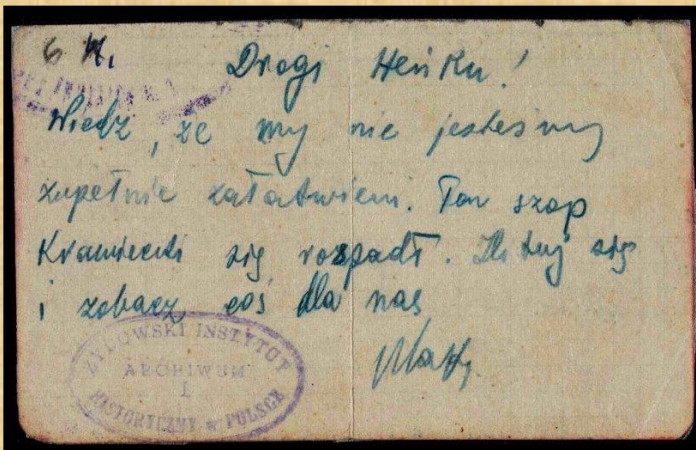 Drogi Heńku!
Wiedz, że my nie jesteśmy
zupełnie załatwieni. Ten szop
Krawiecki się rozpadł. Zlituj się
i zobacz coś dla nas
ŻYDOWSKI INSTYTUT
ARCHIWUM
I
HISTORYCZNY w POLSCE